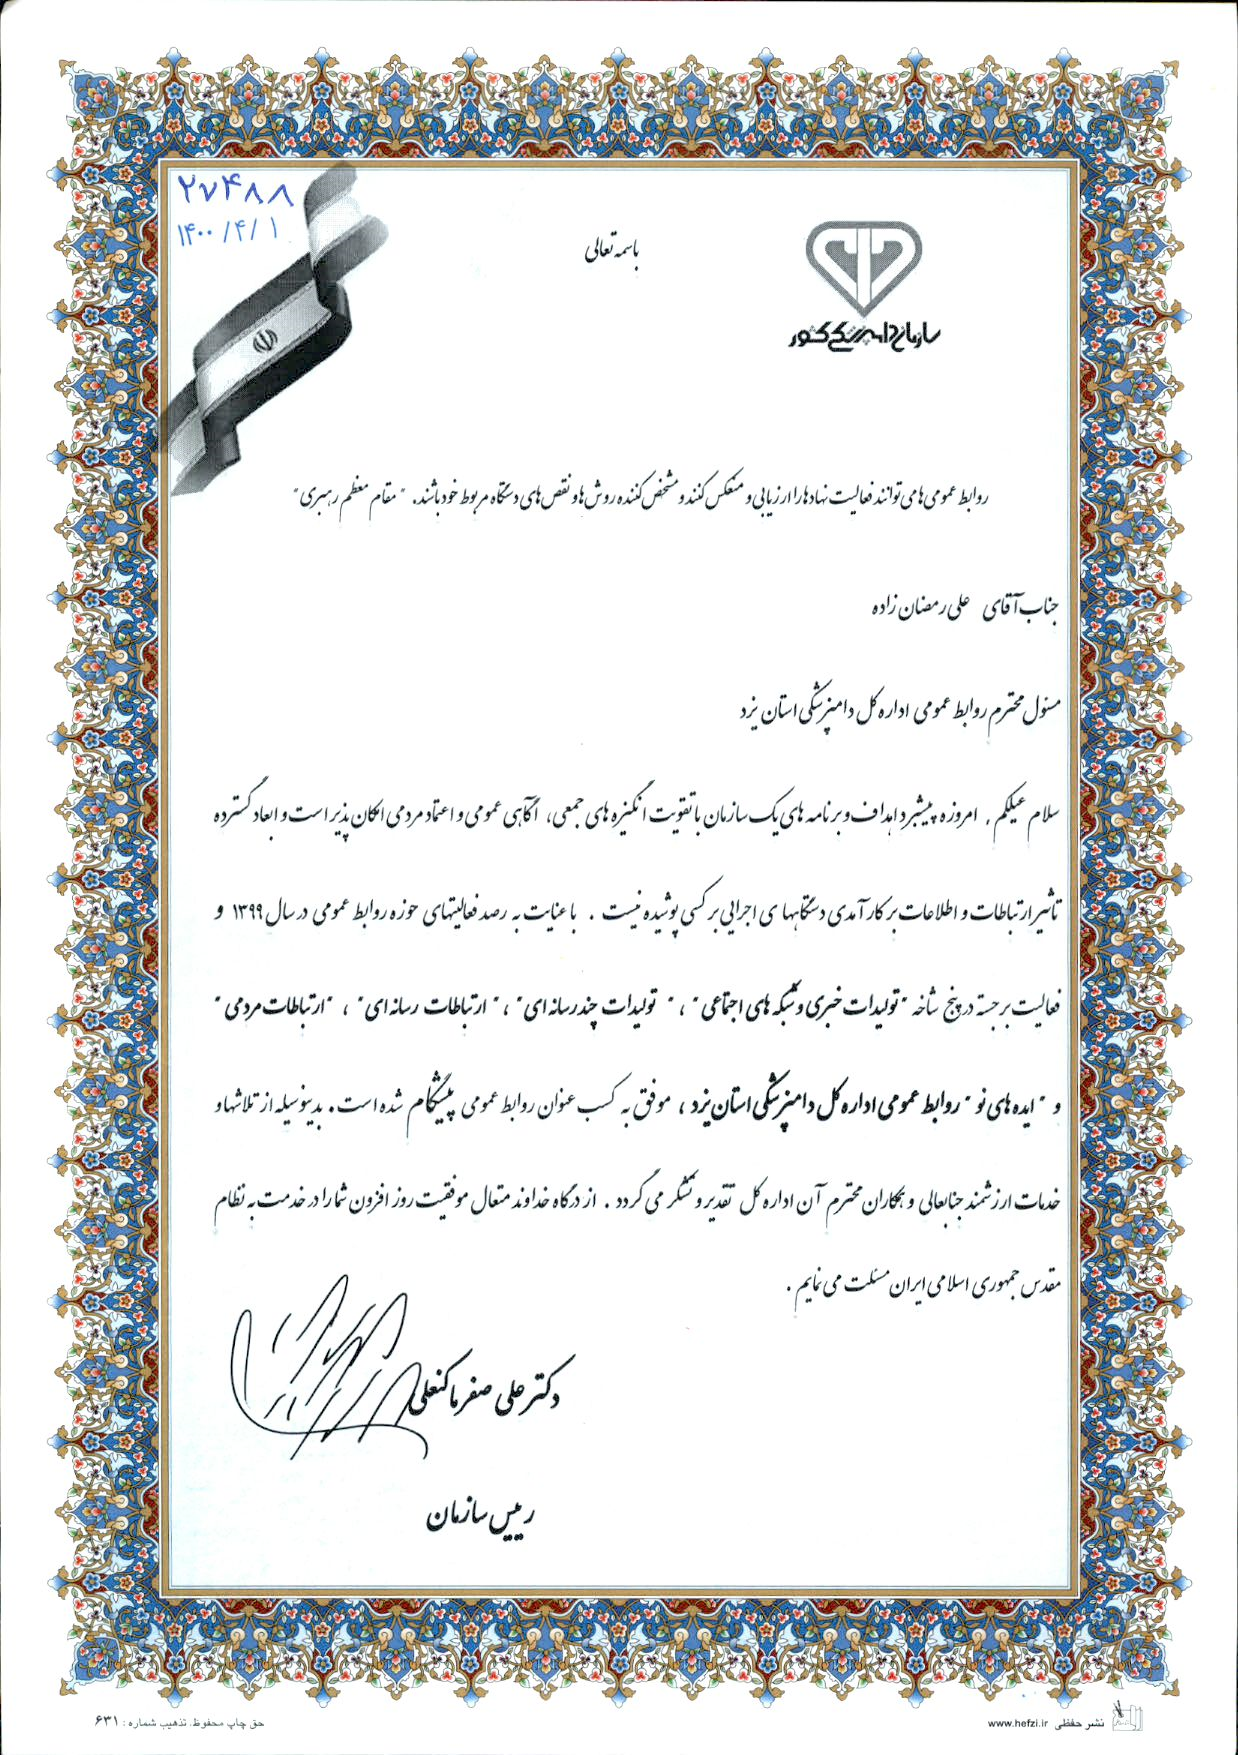 ۲۷۴۸۸
۱۴۰۰/۴/۱
باسمه تعالی
سازمان دامپزشکی کشور
روابط عمومی ها می توانند فعالیت نهادها را ارزیابی و منعکس کنند و مشخص کننده روش ها و نقص های دستگاه مربوط خود باشند. "مقام معظم رهبری"
جناب آقای علی رمضان زاده
مسئول محترم روابط عمومی اداره کل دامپزشکی استان یزد
سلام علیکم . امروزه پیشبرد اهداف و برنامه های یک سازمان با تقویت انگیزه های جمعی، آگاهی عمومی و اعتماد مردمی امکان پذیر است و ابعاد گسترده
تاثیر ارتباطات و اطلاعات بر کارآمدی دستگاهها ی اجرایی بر کسی پوشیده نیست . با عنایت به رصد فعالیتهای حوزه روابط عمومی در سال ۱۳۹۹ و
فعالیت برجسته در پنج شاخه "تولیدات خبری و شبکه های اجتماعی" ، " تولیدات چندرسانه ای" ، " ارتباطات رسانه ای" ، "ارتباطات مردمی"
و "ایده های نو" روابط عمومی اداره کل دامپزشکی استان یزد ، موفق به کسب عنوان روابط عمومی پیشگام شده است. بدینوسیله از تلاشها و
خدمات ارزشمند جنابعالی و همکاران محترم آن اداره کل تقدیر و تشکر می گردد . از درگاه خداوند متعال موفقیت روز افزون شما را در خدمت به نظام
مقدس جمهوری اسلامی ایران مسئلت می نمایم .
دکتر علی صفر ماکنعلی
رییس سازمان
حق چاپ محفوظ. تذهیب شماره : ۶۳۱
نشر حفظی www.hefzi.ir